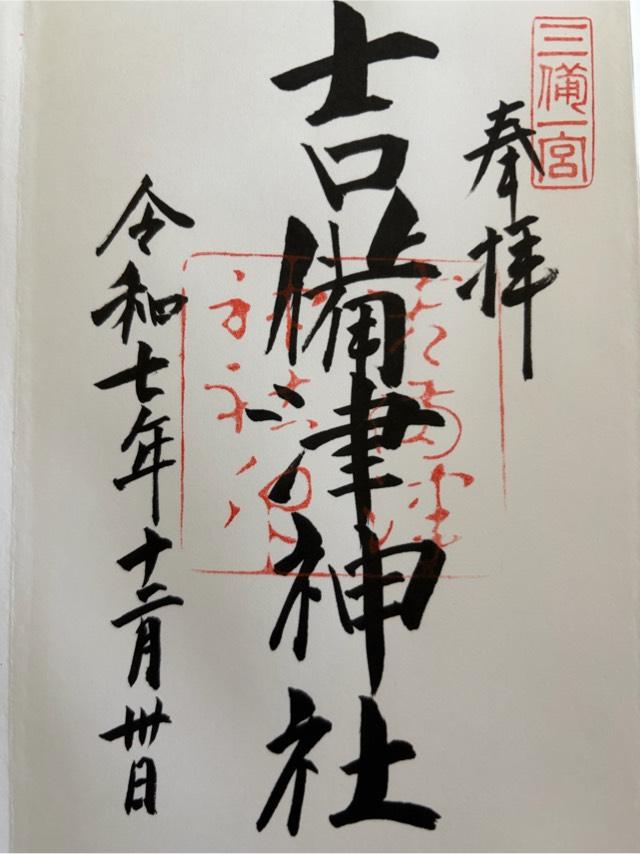 三備一宮
奉拝
吉備津神社
令和七年十二月卅日